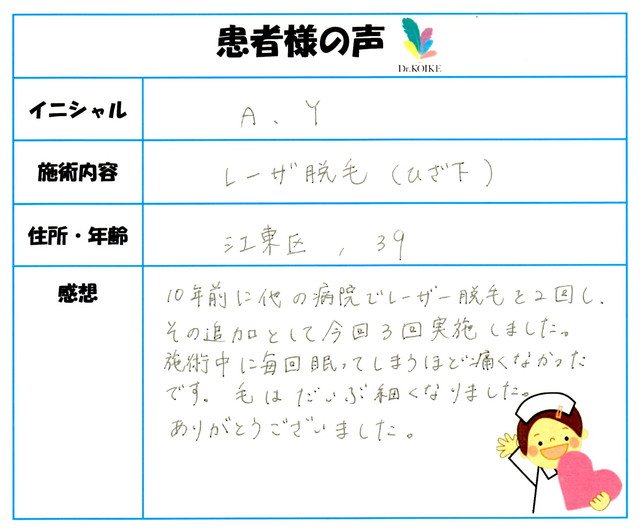 患者様の声
Dr.KOIKE
イニシャル
A、Y
施術内容
レーザ脱毛（ひざ下）
住所・年齢
江東区，39
感想
10年前に他の病院でレーザー脱毛を2回し、
その追加として今回3回実施しました。
施術中に毎回眠ってしまうほど痛くなかった
です。毛はだいぶ細くなりました。
ありがとうございました。